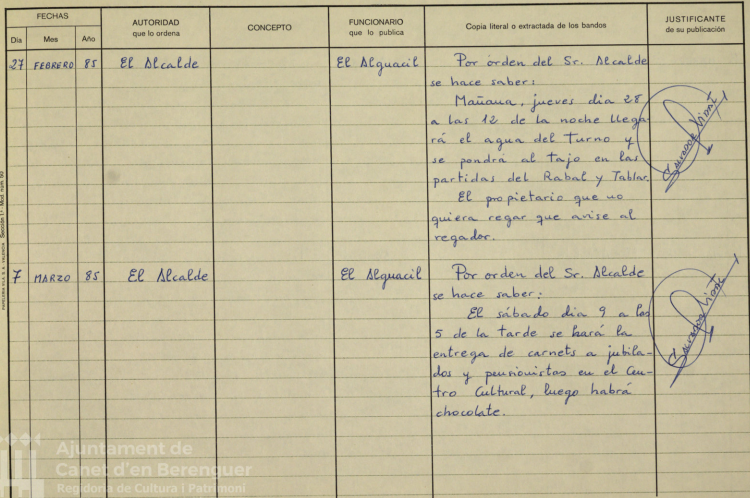 FECHAS
Día Mes Año
AUTORIDAD
que lo ordena
CONCEPTO
FUNCIONARIO
que lo publica
Copia literal o extractada de los bandos
JUSTIFICANTE
de su publicación
27 FEBRERO 85 El Alcalde El Alguacil Por orden del Sr. Alcalde
se hace saber:
Mañana, jueves dia 28
a las 12 de la noche llega-
rá el agua del Turno y
se pondrá al tajo en las
partidas del Rabal y Tablar.
El propietario que no
quiera regar que avise al
regador.
Salvador Mont
7 MARZO 85 El Alcalde El Alguacil Por orden del Sr. Alcalde
se hace saber:
El sábado dia 9 a las
5 de la tarde se hará la
entrega de carnets a jubila-
dos y pensionistas en el Cen-
tro Cultural, luego habrá
chocolate.
Salvador Mont
Sección 1.ª - Mod. núm. 90
Ajuntament de
Canet d'en Berenguer
Regidoria de Cultura i Patrimoni